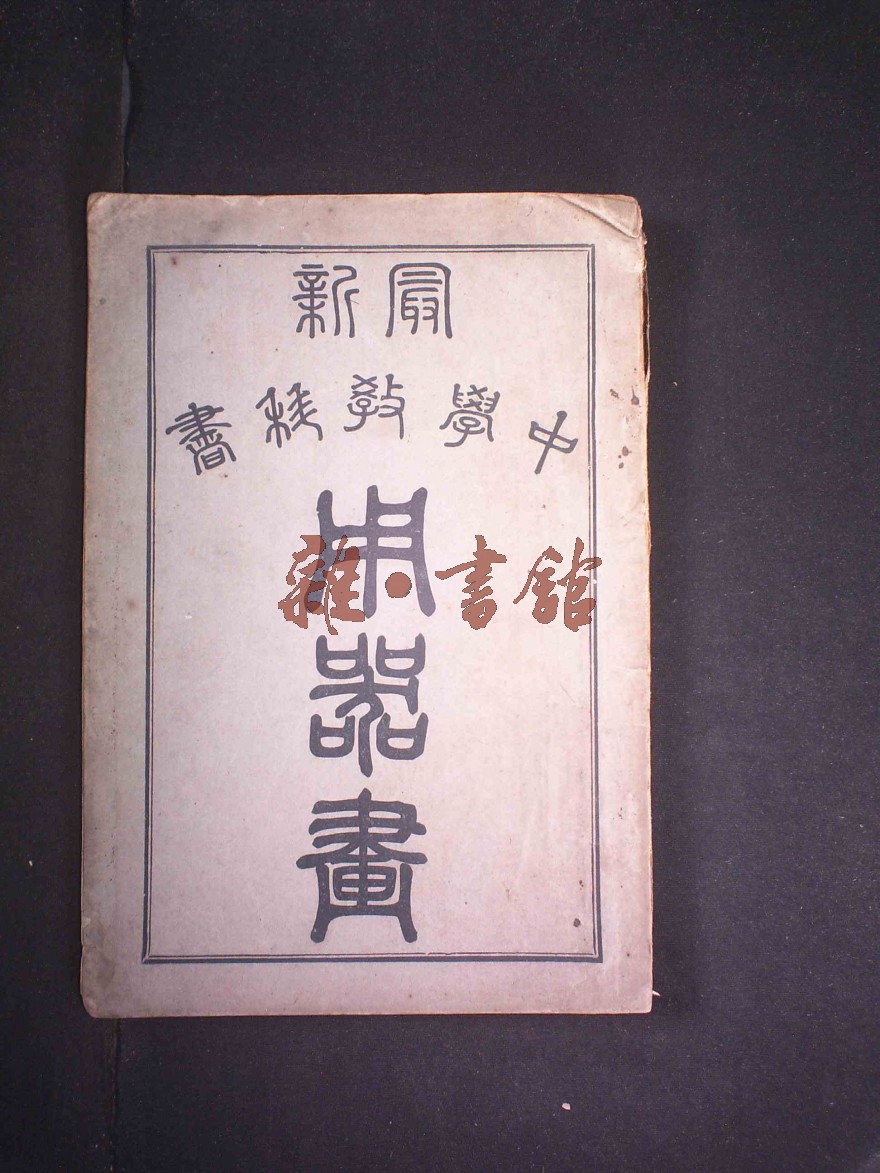 最新
中學教科書
用器畫
雜·書館